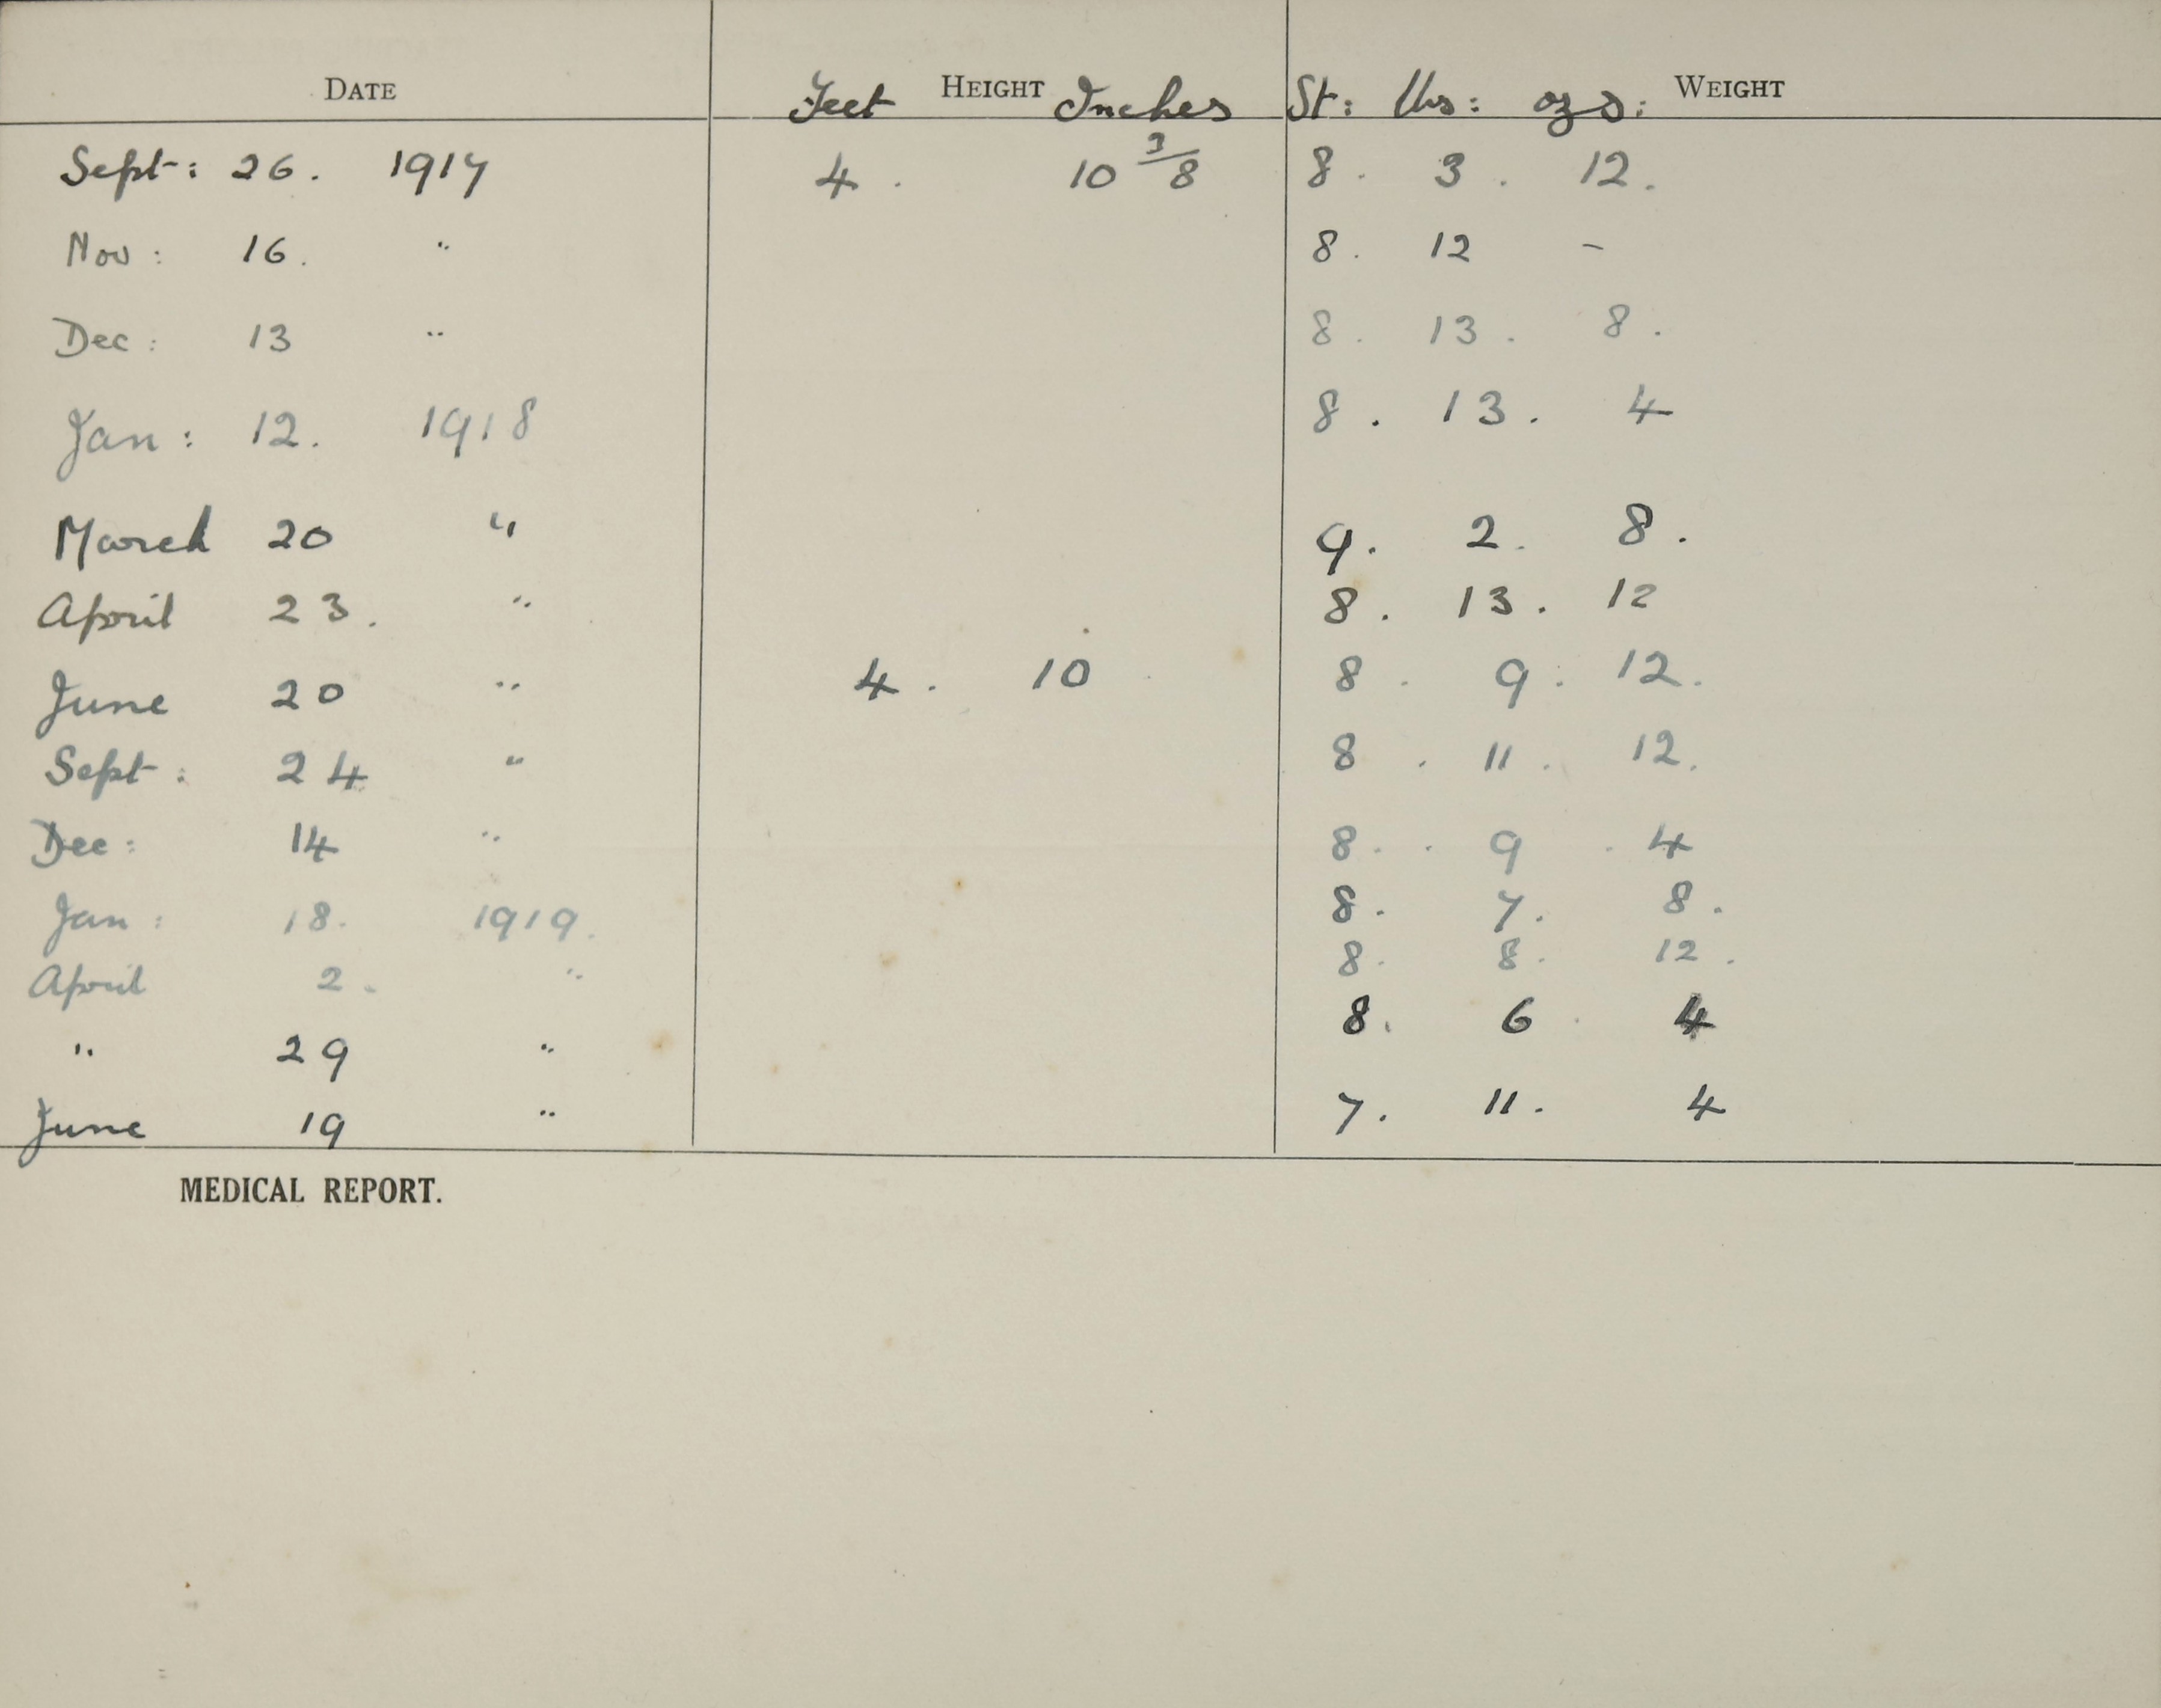 DATE Feet HEIGHT Inches St: lbs: ozs: WEIGHT
Sept: 26. 1917 4. 10 3/8 8. 3. 12.
Nov: 16. " 8. 12 -
Dec: 13 " 8. 13. 8.
Jan: 12. 1918 8. 13. 4
March 20 " 9. 2. 8.
April 23. " 8. 13. 12
June 20 " 4. 10 8. 9. 12.
Sept: 24 " 8. 11. 12.
Dec: 14 " 8. 9. 4
Jan: 18. 1919. 8. 7. 8.
April 2. " 8. 8. 12.
" 29 " 8. 6. 4
June 19 " 7. 11. 4
MEDICAL REPORT.